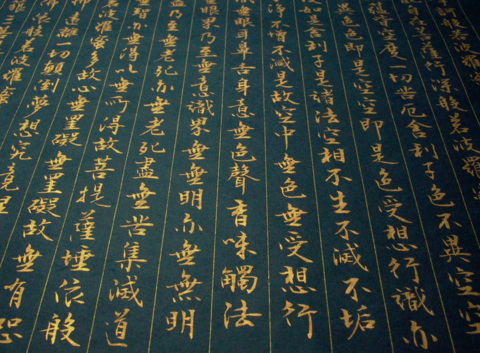 般若波羅
菩薩行深般若波羅
皆空度一切苦厄舍利子色不異空空
異色色即是空空即是色受想行識亦
是舍利子是諸法空相不生不滅不垢
淨不增不減是故空中無色無受想行
無眼耳鼻舌身意無色聲香味觸法
眼界乃至無意識界無無明亦無無明
盡乃至無老死亦無老死盡無苦集滅道
無智亦無得以無所得故菩提薩埵依般
波羅蜜多故心無罣礙無罣礙故無有恐
怖遠離一切顛倒夢想究竟涅
依般若波羅蜜
三世